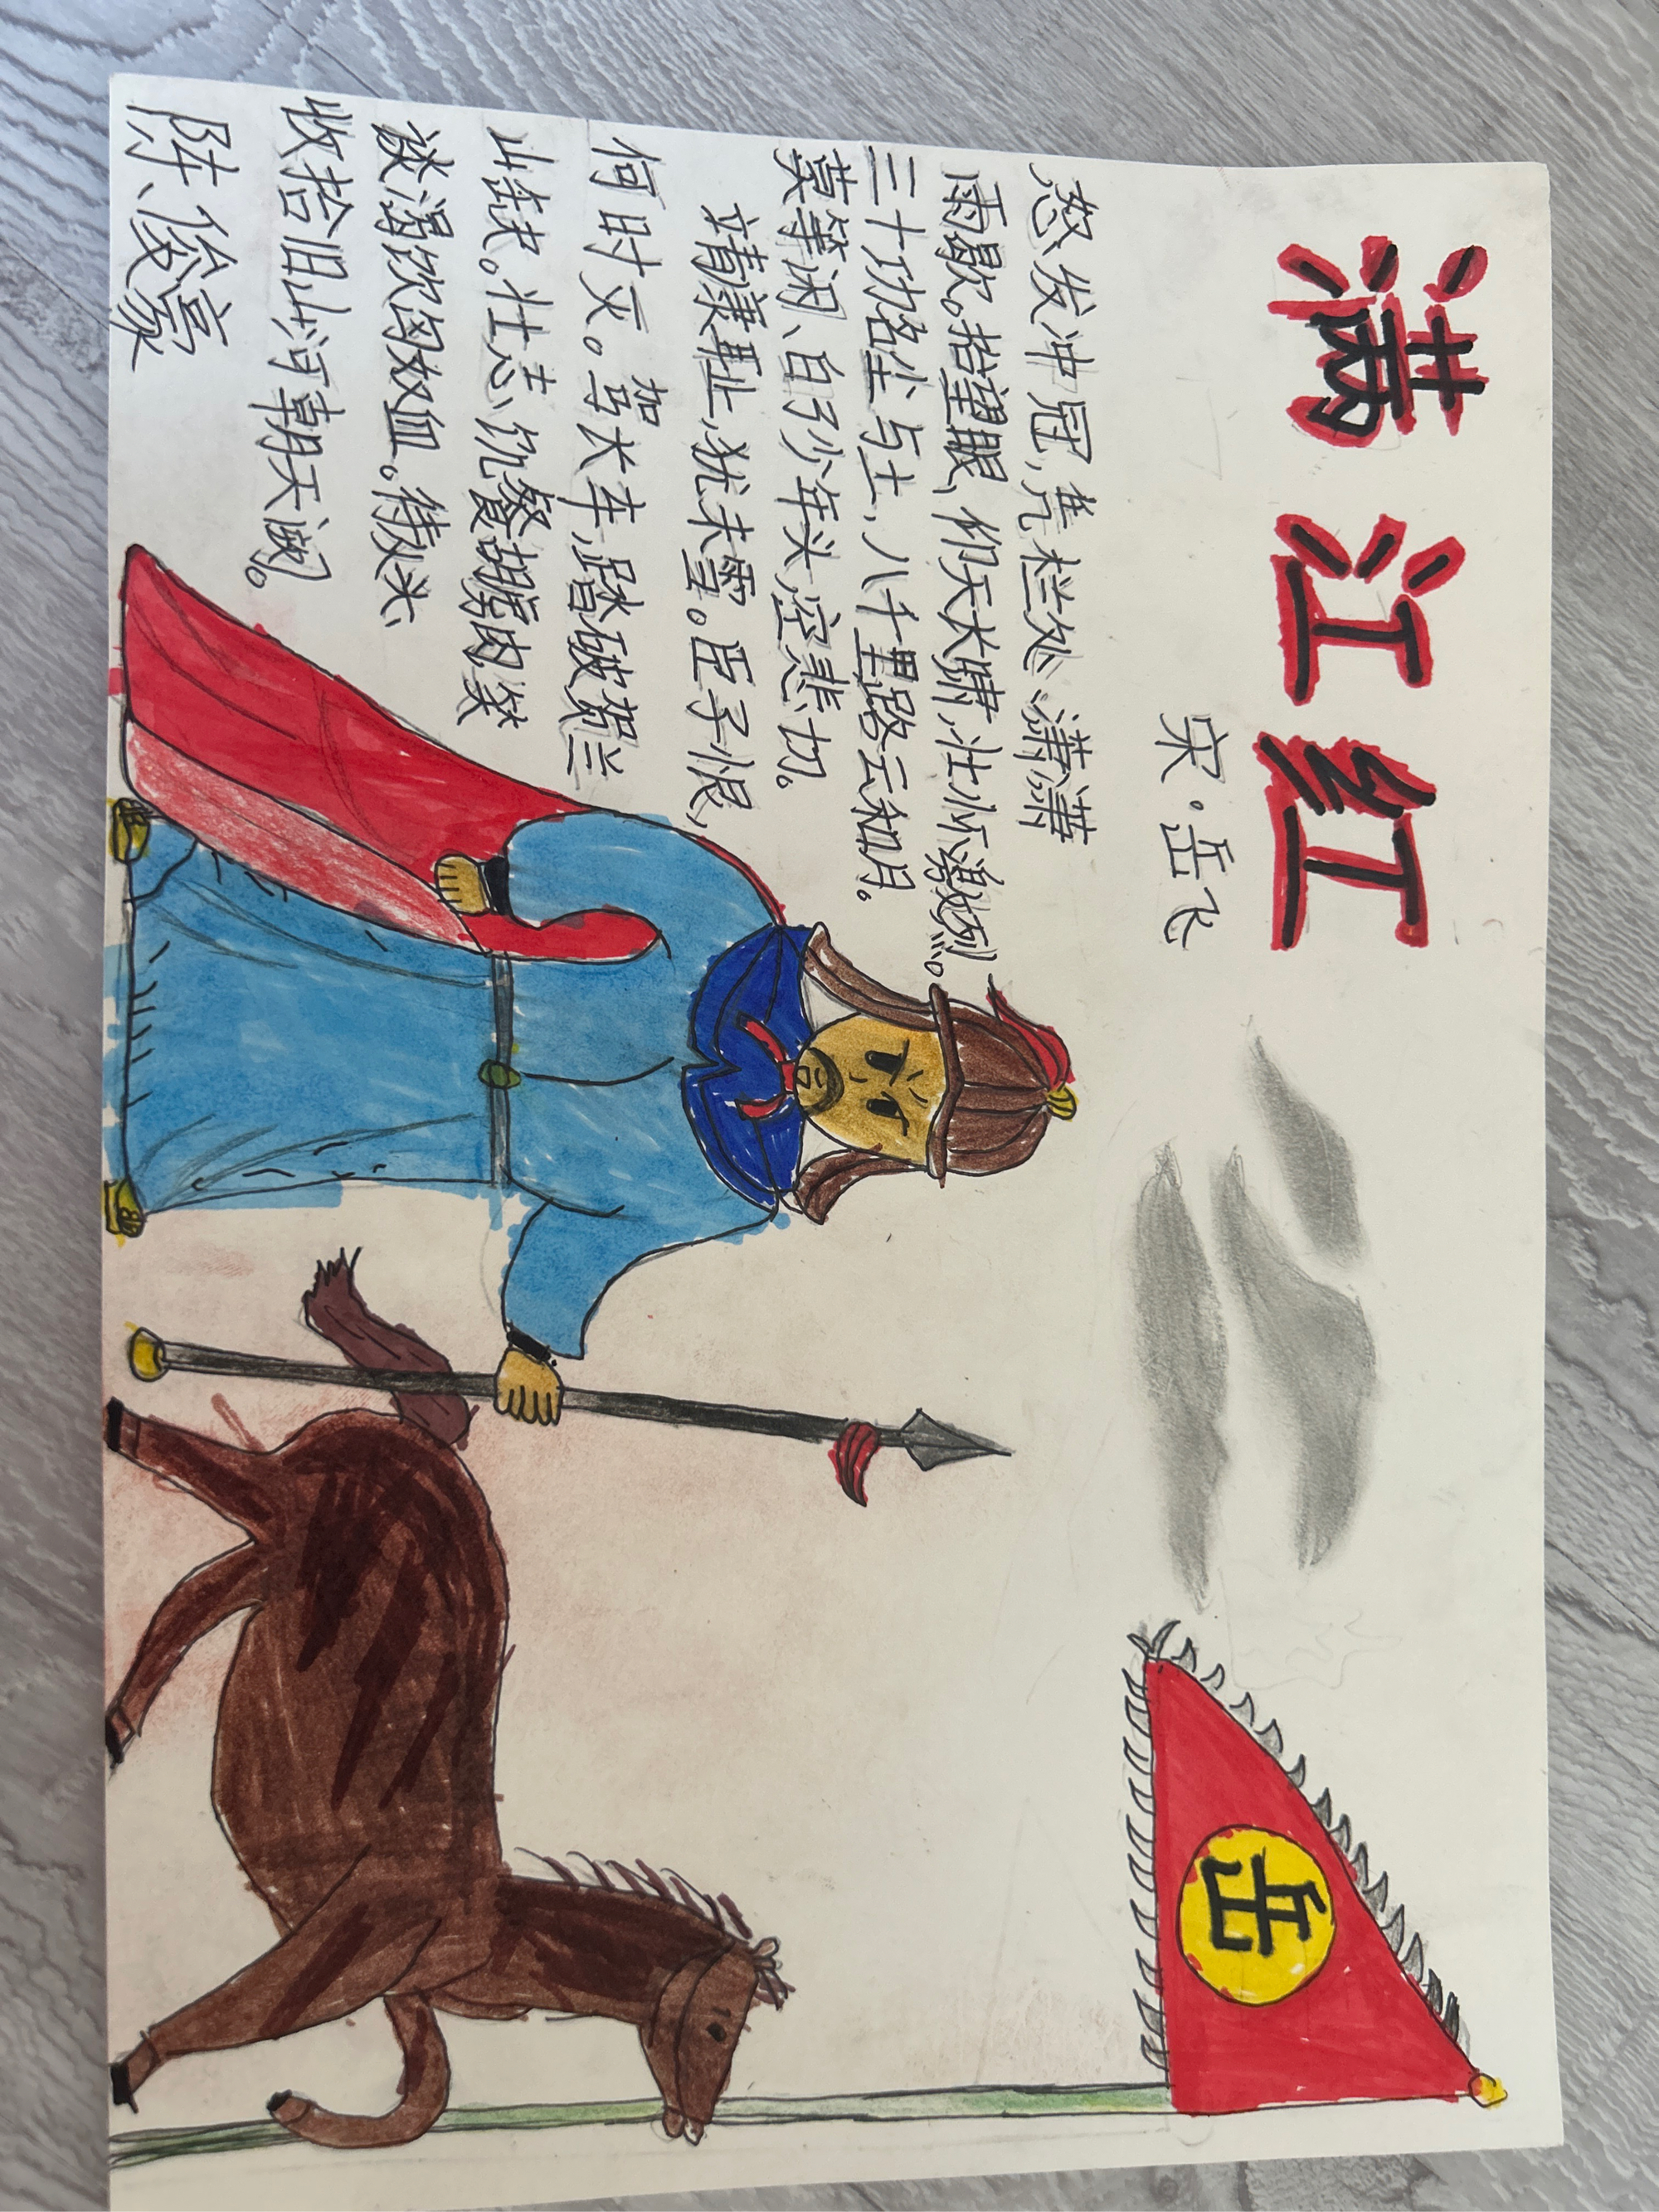 满江红
宋·岳飞
怒发冲冠,凭栏处、潇潇
雨歇。抬望眼,仰天长啸,壮怀激烈。
三十功名尘与土,八千里路云和月。
莫等闲、白了少年头,空悲切。
靖康耻,犹未雪。臣子恨,
何时灭。驾长车,踏破贺兰
山缺。壮志饥餐胡虏肉,笑
谈渴饮匈奴血。待从头、
收拾旧山河,朝天阙。
陈俊豪
岳